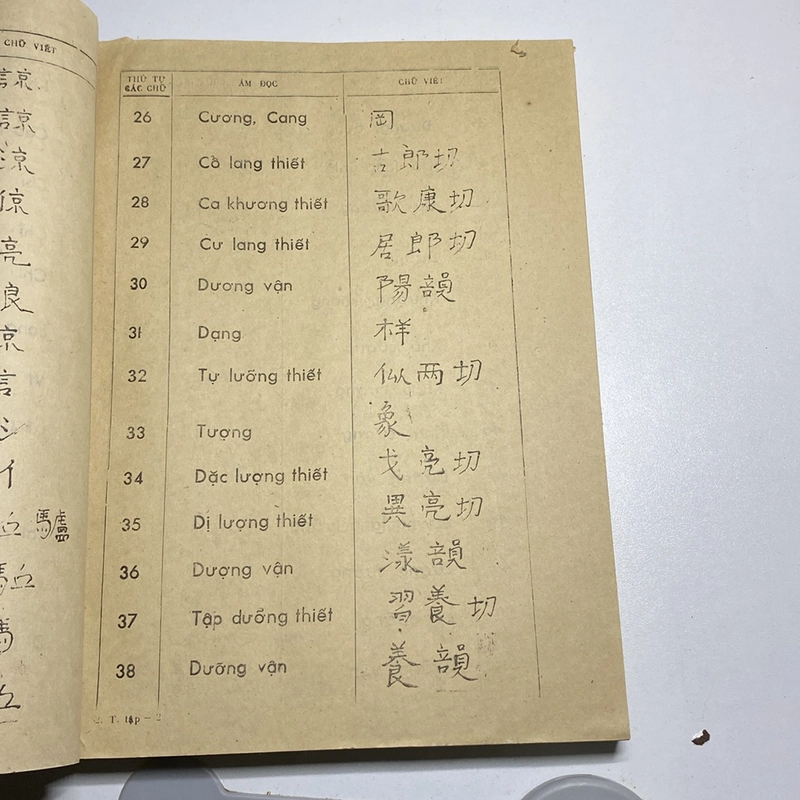 CHỮ VIẾT
諒
諒
京
亮
良
言
驢
馬丘
馬
THỨ TỰ CÁC CHỮ ÂM ĐỌC CHỮ VIẾT
26 Cương, Cang 岡
27 Cồ lang thiết 古郎切
28 Ca khương thiết 歌康切
29 Cư lang thiết 居郎切
30 Dương vận 陽韻
31 Dạng 样
32 Tự lưỡng thiết 似两切
33 Tượng 象
34 Dặc lượng thiết 弋亮切
35 Dị lượng thiết 異亮切
36 Dượng vận 漾韻
37 Tập dưỡng thiết 習養切
38 Dưỡng vận 養韻
2. T. tập – 2